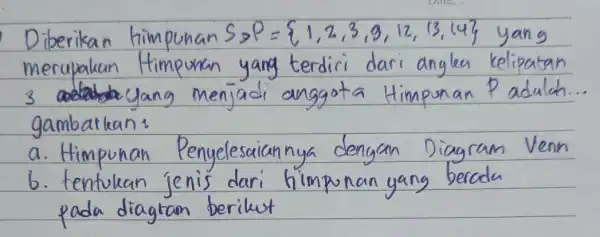 Diberikan himpunan S⊃P = {1,2,3,9,12,13,14} yang
merupakan Himpunan yang terdiri dari angka kelipatan
3 yang menjadi anggota Himpunan P adalah...
gambarkan:
a. Himpunan Penyelesaiannya dengan Diagram Venn
b. tentukan jenis dari himpunan yang berada
pada diagram berikut